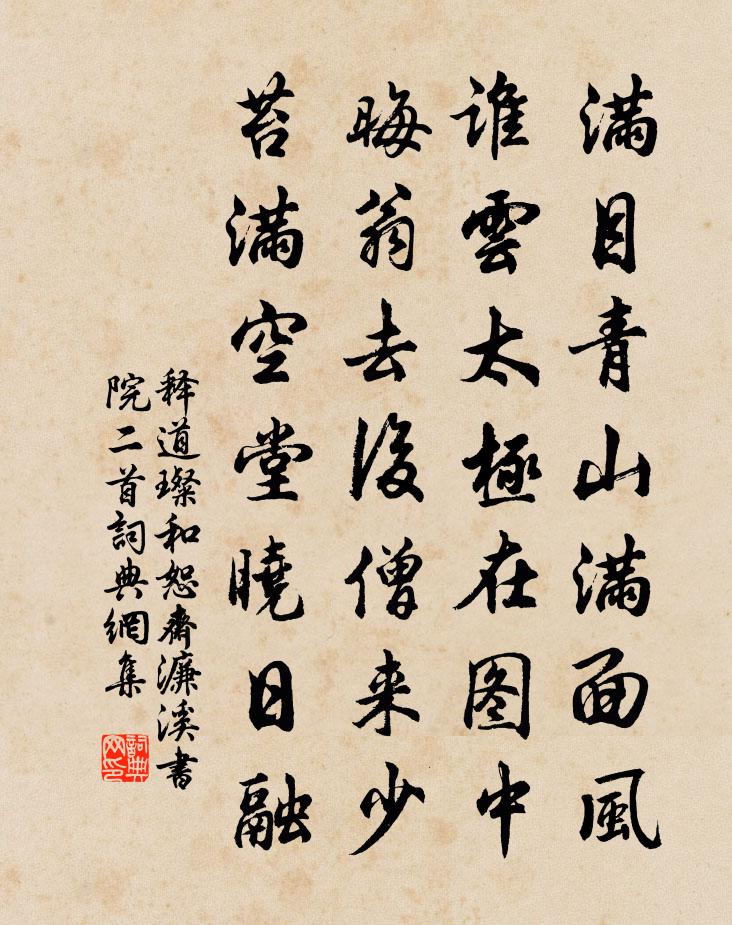 满目青山满面風
誰雲太極在图中
晦翁去後僧来少
苔满空堂曉日融
释道璨和恕齋濂溪書
院二首詞典網集
詞典网印